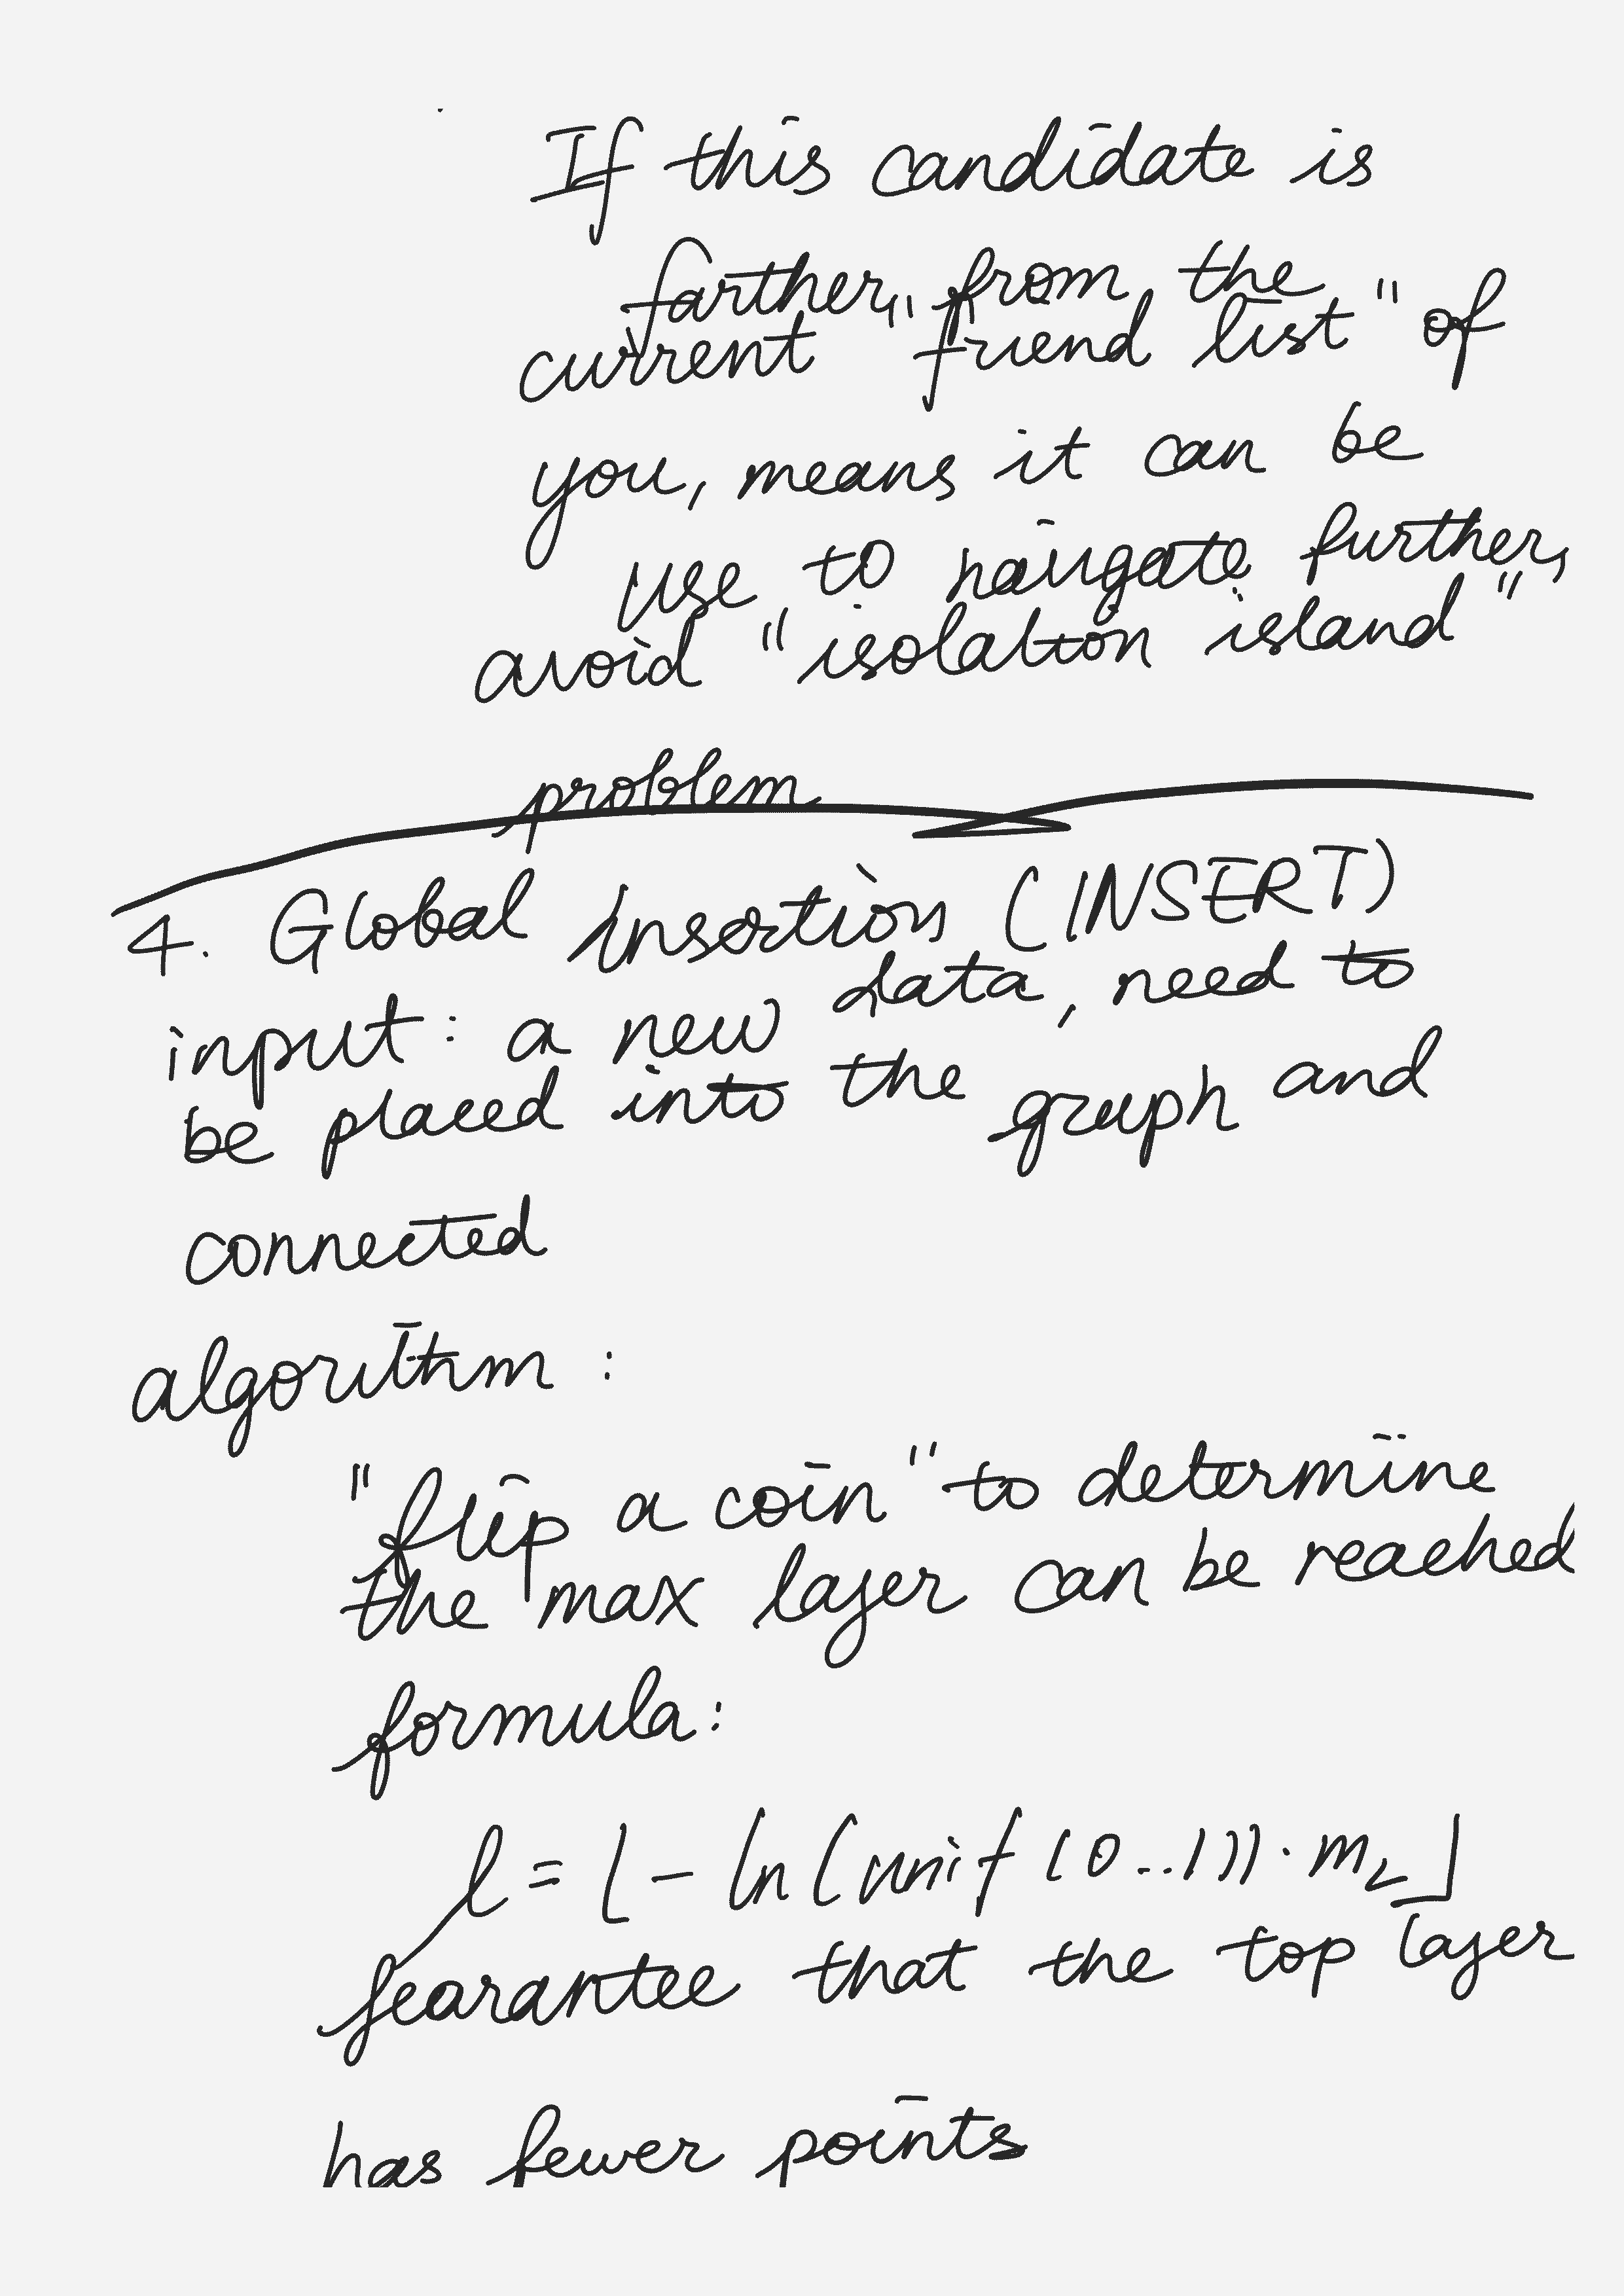 If this candidate is
farther, from the
current "friend list" of
you, means it can be
use to navigate further,
avoid "isolation island"
problem
4. Global Insertion (INSERT)
input: a new data, need to
be placed into the graph and
connected
algorithm:
"flip a coin" to determine
the max layer can be reached
formula:
l = ⌊- ln(unif(0..1)) · m_L⌋
gearantee that the top layer
has fewer points